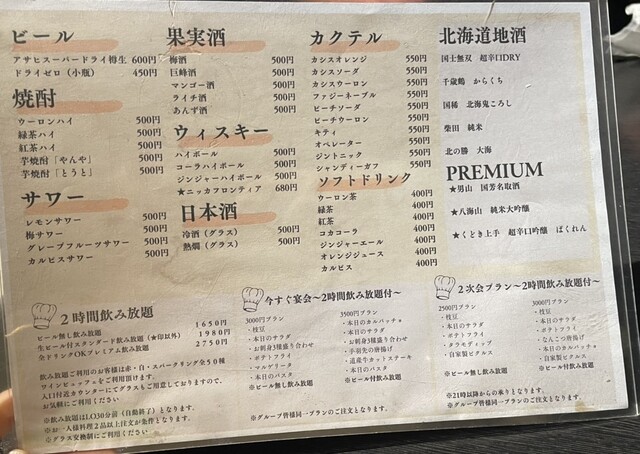 ビール
アサヒスーパードライ樽生 600円
ドライゼロ（小瓶） 450円
焼酎
ウーロンハイ 500円
緑茶ハイ 500円
紅茶ハイ 500円
芋焼酎「やんや」 500円
芋焼酎「とうと」 500円
サワー
レモンサワー 500円
梅サワー 500円
グレープフルーツサワー 500円
カルピスサワー 500円
果実酒
梅酒 500円
巨峰酒 500円
マンゴー酒 500円
ライチ酒 500円
あんず酒 500円
ウィスキー
ハイボール 500円
コーラハイボール 500円
ジンジャーハイボール 500円
★ニッカフロンティア 680円
日本酒
冷酒（グラス） 500円
熱燗（グラス） 500円
カクテル
カシスオレンジ 550円
カシスソーダ 550円
カシスウーロン 550円
ファジーネーブル 550円
ピーチソーダ 550円
ピーチウーロン 550円
キティ 550円
オペレーター 550円
ジントニック 550円
シャンディーガフ 550円
ソフトドリンク
ウーロン茶 400円
緑茶 400円
紅茶 400円
コカコーラ 400円
ジンジャーエール 400円
オレンジジュース 400円
カルピス 400円
北海道地酒
国士無双 超辛口DRY
千歳鶴 からくち
国稀 北海鬼ころし
柴田 純米
北の勝 大海
PREMIUM
★男山 国芳名取酒
★八海山 純米大吟醸
★くどき上手 超辛口吟醸 ばくれん
２時間飲み放題
ビール無し飲み放題 1650円
生ビール付スタンダード飲み放題（★印以外） 1980円
全ドリンクOKプレミアム飲み放題 2750円
飲み放題ご利用のお客様は赤・白・スパークリング全50種
ワインビュッフェをご利用頂けます。
入口付近カウンターにてグラスもご用意しておりますので、
お気軽にご利用ください
※飲み放題はLO30分前（自動終了）となります。
※お一人様料理２品以上注文が条件となります。
※グラス交換制にご利用ください
今すぐ宴会～２時間飲み放題付～
3000円プラン
・枝豆
・本日のサラダ
・お刺身3種盛り合わせ
・ポテトフライ
・マルゲリータ
・本日のパスタ
※ビール無し飲み放題
3500円プラン
・本日のカルパッチョ
・本日のサラダ
・お刺身3種盛り合わせ
・手羽先の唐揚げ
・道産牛カットステーキ
・本日のパスタ
※ビール付飲み放題
※グループ皆様同一プランのご注文となります。
２次会プラン～２時間飲み放題付～
2500円プラン
・枝豆
・本日のサラダ
・ポテトフライ
・タラモディップ
・自家製ピクルス
※ビール無し飲み放題
3000円プラン
・枝豆
・本日のサラダ
・ポテトフライ
・なんこつ唐揚げ
・本日のカルパッチョ
・自家製ピクルス
※ビール付飲み放題
※21時以降からの承りとなります。
※グループ皆様同一プランのご注文となります。